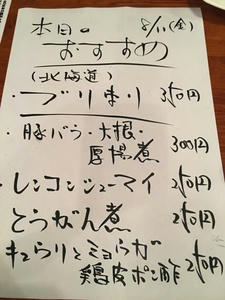 本日の 8/11(金)
おすすめ
(北海道)
・ブリ刺り 350円
・豚バラ・大根・
厚揚煮 300円
・レンコンシューマイ 250円
とうがん煮 250円
キュウリとミョウガ
鶏皮ポン酢 250円